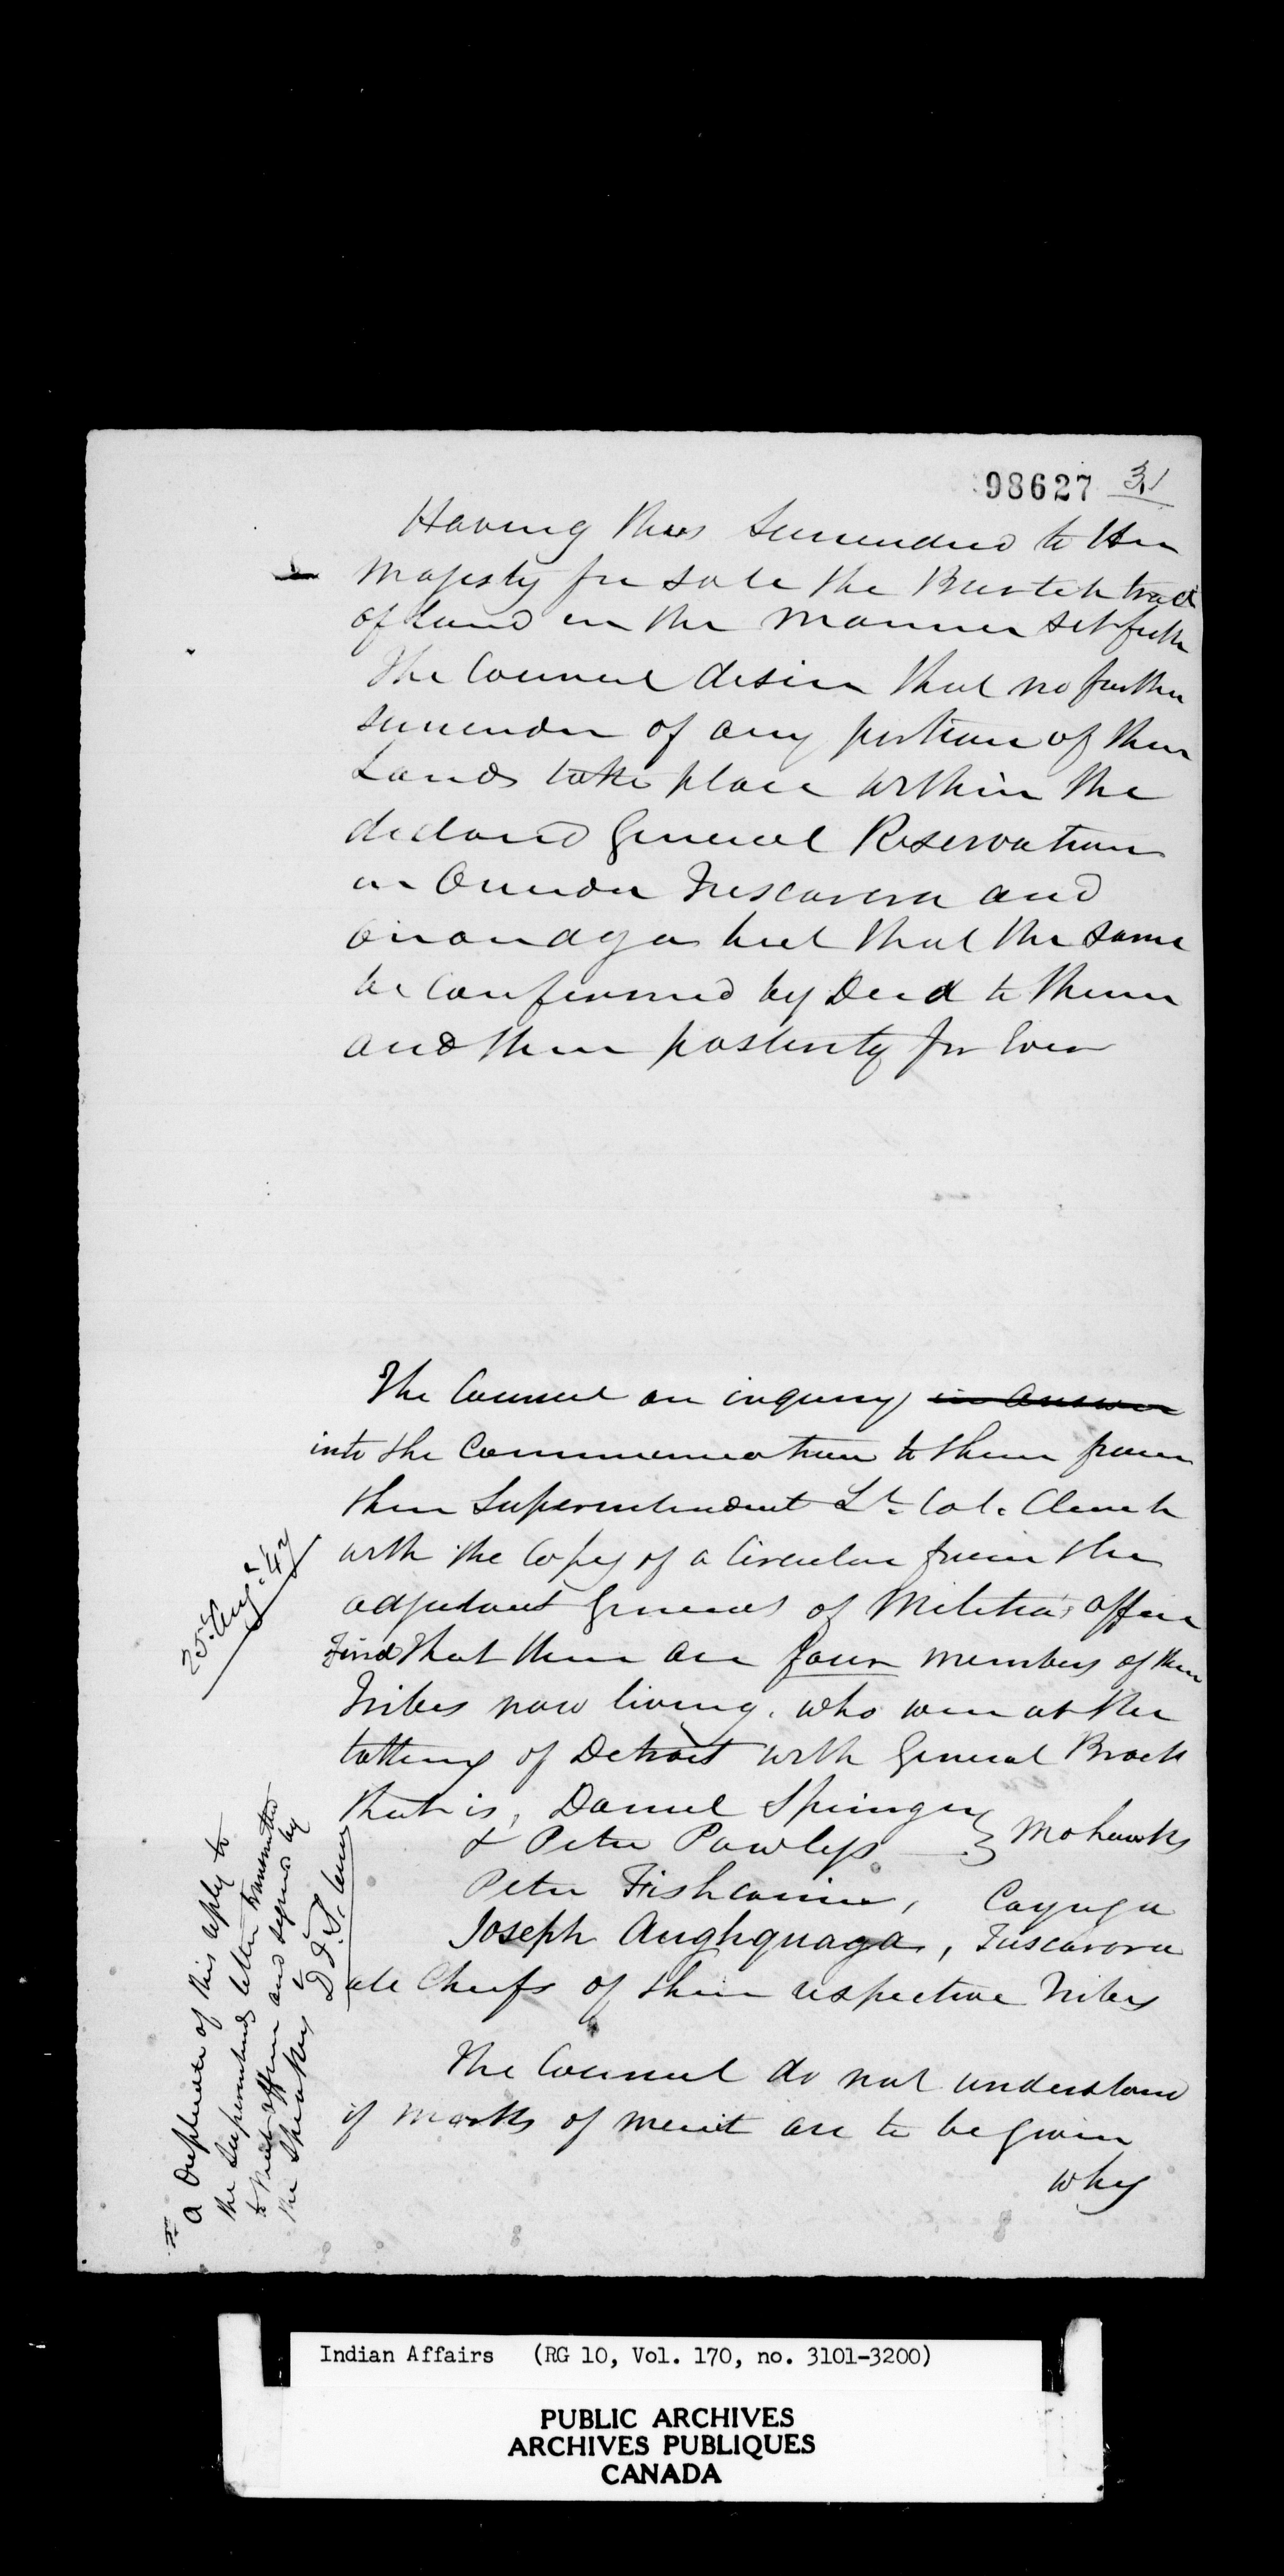 98627 31
Having thus Surrendered to Her
Majesty for sale the Burtch tract
of Land in the manner set forth
The Council desire that no further
surrender of any portion of their
Lands take place within the
declared General Reservation
in Tuscarora and
Onondaga but that the same
be Confirmed by Deed to them
and their posterity for Ever
The Council on inquiry in answer
into the Communication to them from
their Superintendent Lt. Col. Clench
with the Copy of a Circular from the
adjutant General of Militia's office
Find that there are four members of their
Tribes now living, who were at the
taking of Detroit with General Brock
that is, Daniel Springer
& Peter Powless } Mohawks
Peter Fishcarrier, Cayuga
Joseph Aughquaga, Tuscarora
all Chiefs of their respective Tribes
The Council do not understand
if marks of merit are to be given
why
25th Augt. 47
a Duplicate of this reply to
the Superintends letter transmitted
to that officer and signed by
the Speaker
Indian Affairs (RG 10, Vol. 170, no. 3101-3200)
PUBLIC ARCHIVES
ARCHIVES PUBLIQUES
CANADA